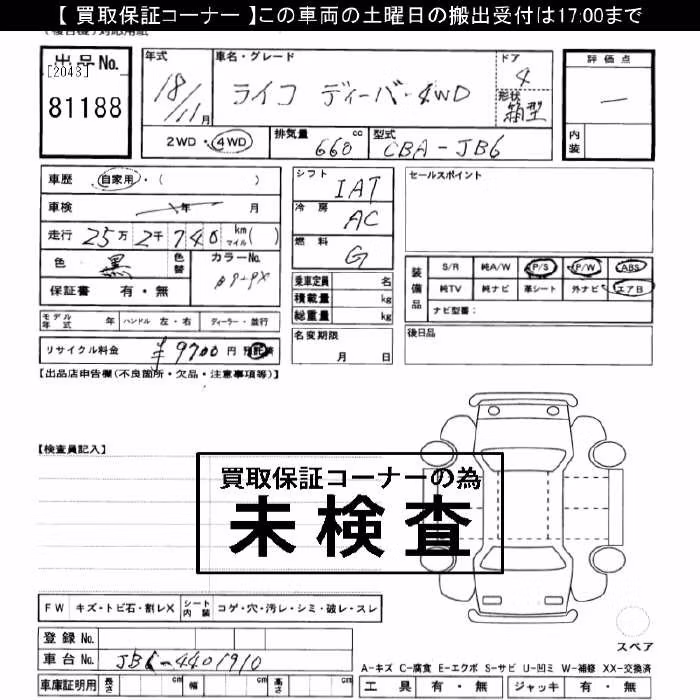 【 買取保証コーナー 】この車両の土曜日の搬出受付は17:00まで
出品No.
[2043]
81188
年式
18/11月
車名・グレード
ライコ ディーバ・4WD
ドア
4
形状
箱型
評価点
一
内装
2WD・4WD
排気量
660 cc
型式
CBA-JB6
車歴 自家用・( )
車検 年 月
走行 25万2千740 km マイル( )
色 黒 色替
カラーNo.
保証書 有・無
シフト
IAT
冷房
AC
燃料
G
乗車定員 名
積載量 kg
総重量 kg
セールスポイント
装備品
S/R 純A/W P/S P/W ABS
純TV 純ナビ 革シート 外ナビ エアB
ナビ型番:
モデル年式 年 ハンドル 左・右 ディーラー・並行
名変期限
月 日
後日品
リサイクル料金 ¥9700円 預託済
【出品店申告欄(不良箇所・欠品・注意事項等)】
【検査員記入】
買取保証コーナーの為
未検査
FW キズ・トビ石・割レX シート内装 コゲ・穴・汚レ・シミ・破レ・スレ
登録No.
車台No. JB6-4401910
車庫証明用 長さ cm 幅 cm 高さ cm
スペア
A-キズ C-腐食 E-エクボ S-サビ U-凹ミ W-補修 XX-交換済
工具 有・無 ジャッキ 有・無